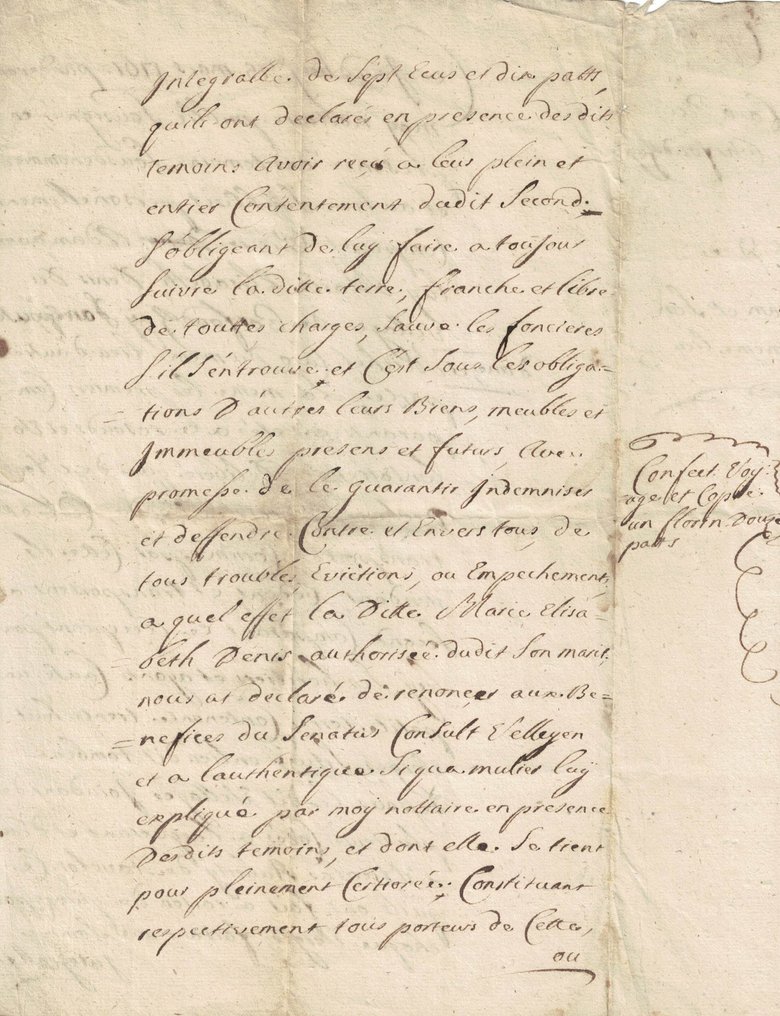 Integralle de Sept Ecus et dix patts,
quils ont declarés en presence desdits
temoins avoir reçû a leur plein et
entier Contentement dudit Second,
s'obligeant de luy faire a toujour
suivre la ditte terre, franche et libre
de touttes charges, sauve les foncieres
s'il s'entrouve, et C'est sous les obliga=
=tions D'autres leurs Biens, meubles et
Immeubles presens et futurs, Avec
promesse de le guarantir Indemniser
et deffendre Contre et Envers tous, de
tous troubles, Evictions, ou Empechement,
a quel effet la Ditte Marie Elisa=
=beth Denis authorisée dudit Son marit
nous at declaré de renoncer aux Be=
=nefices du Senatus Consult Velleyen
et a l'authentique Si qua mulier luy
expliqué par moy nottaire en presence
Desdits temoins, et dont elle Se tient
pour pleinement Certiorée, Constituant
respectivement tous porteurs de Cette,
ou
Confect. Voy=
age et Copie
un florin Douze
patts